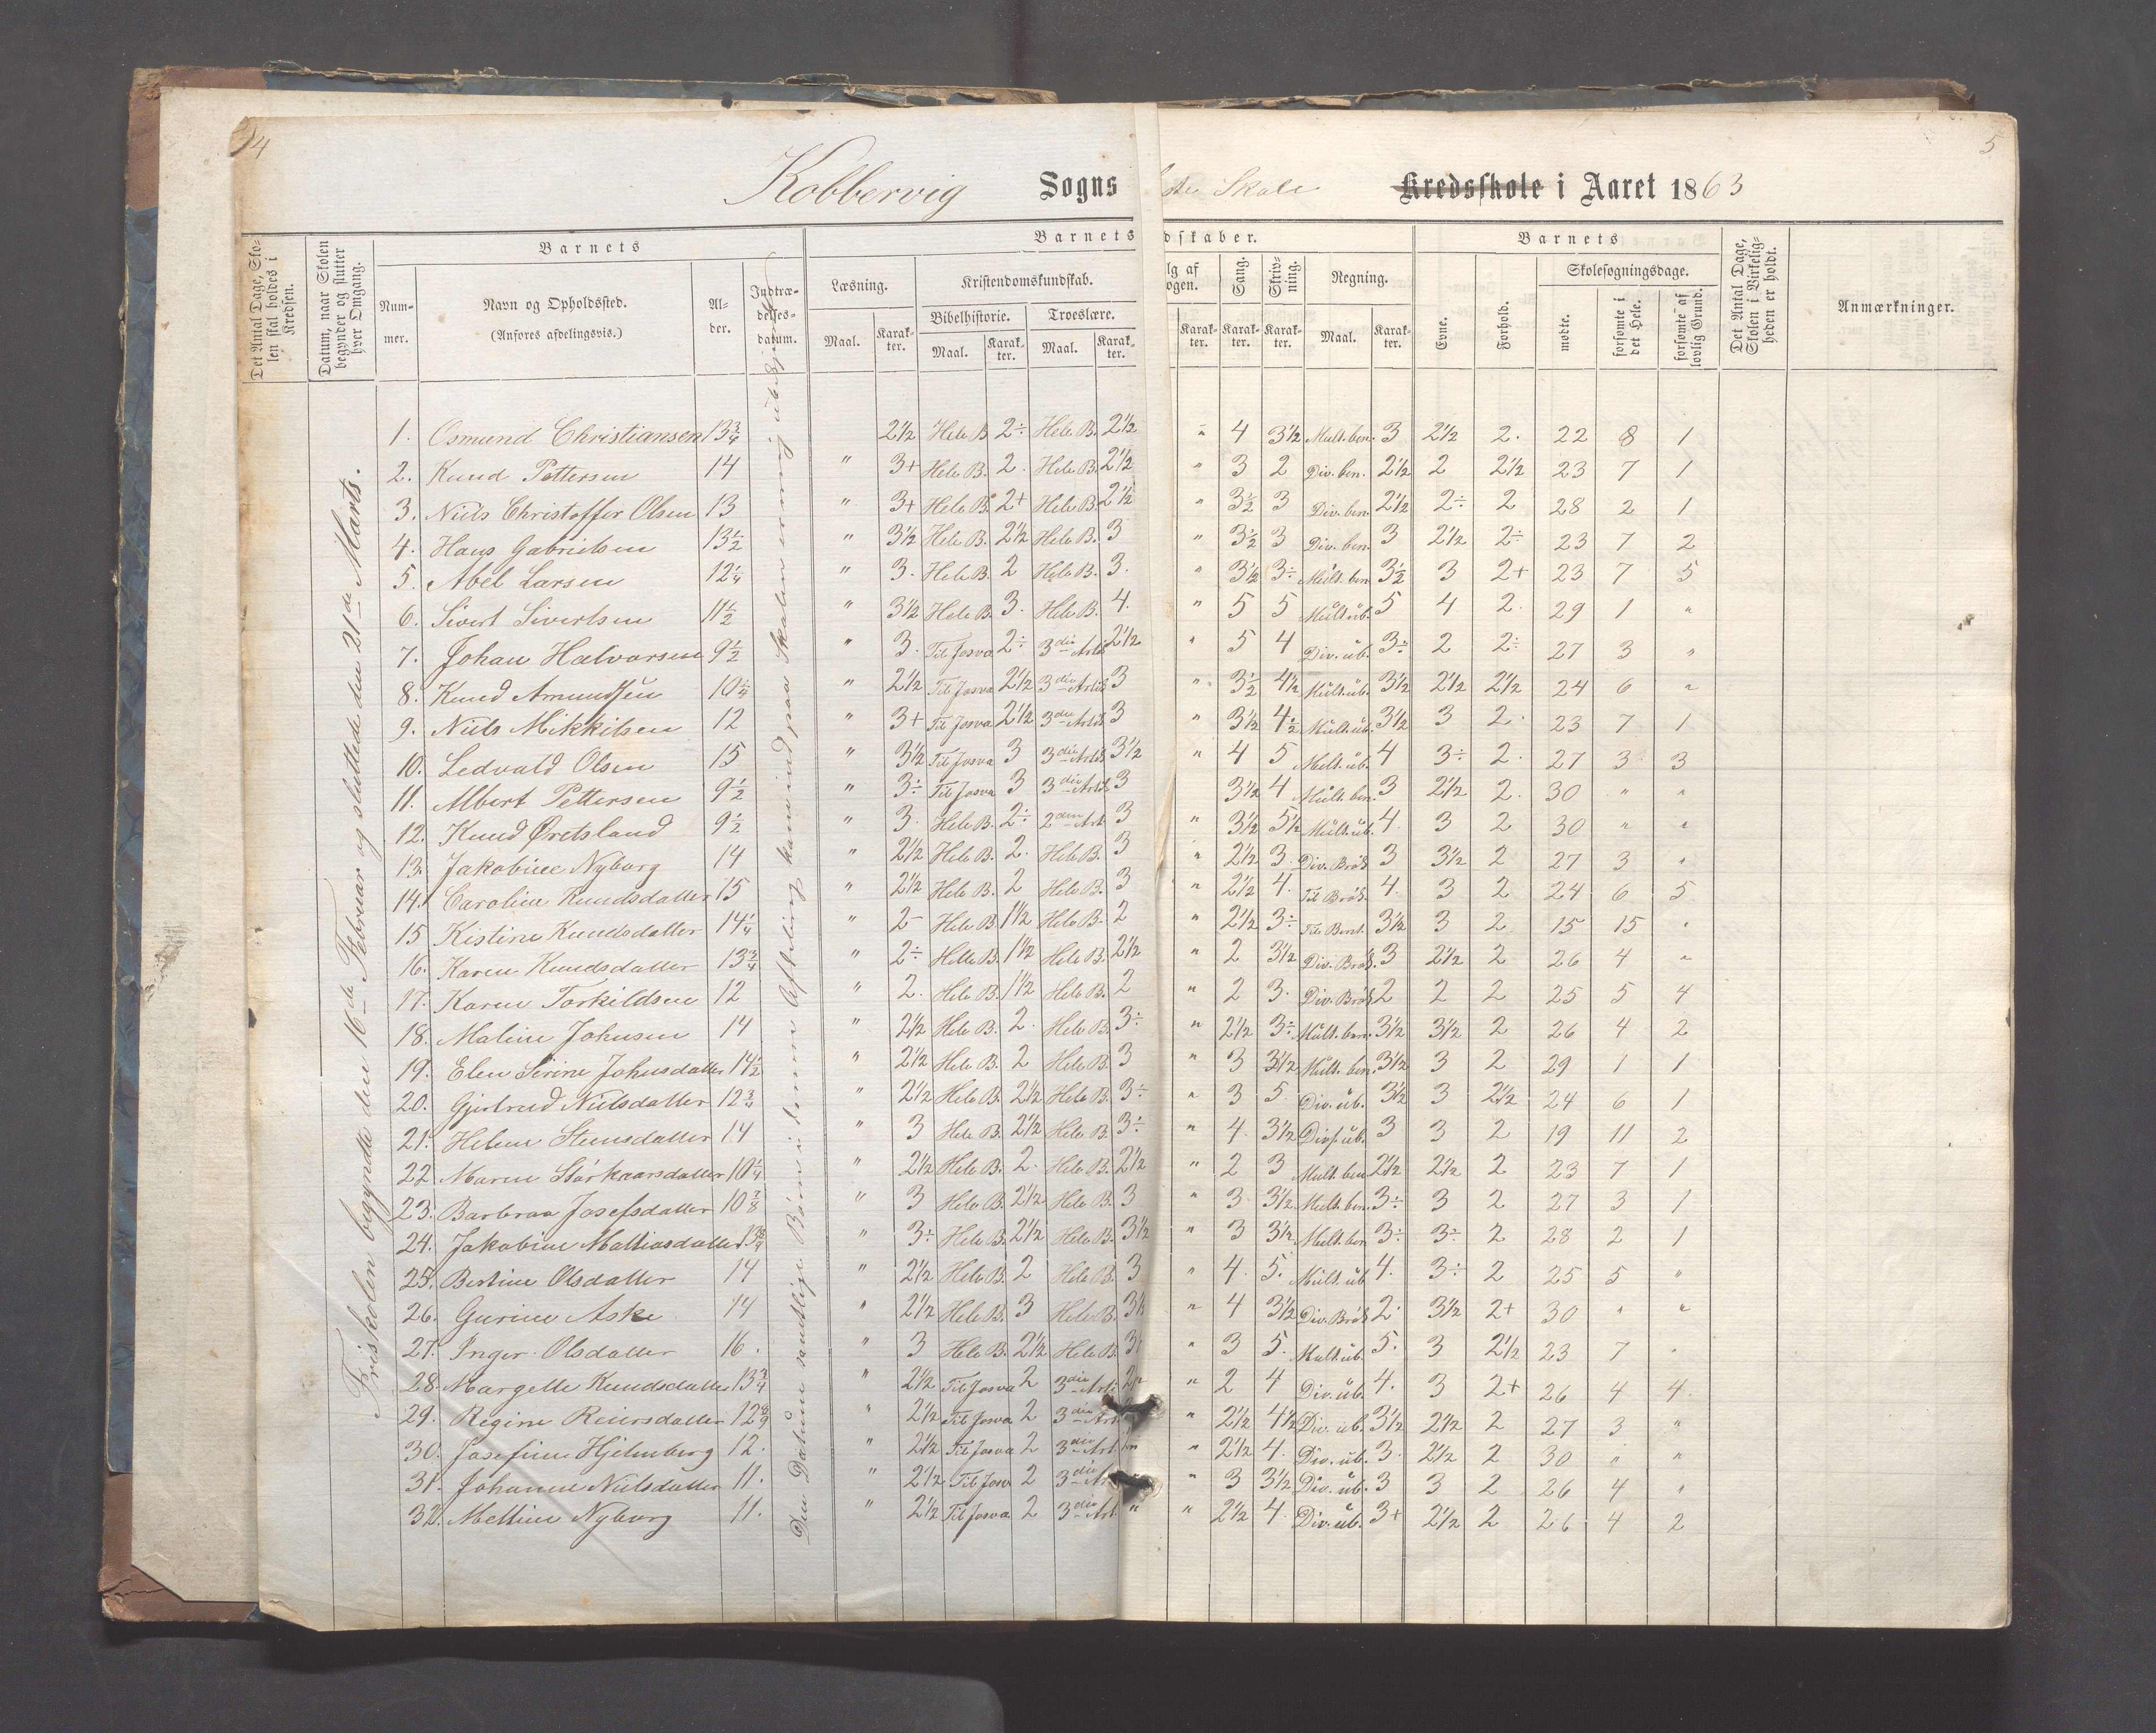 4
5
Kobbervig Sogns
Skole Kredsskole i Aaret 1863
Det Antal Dage, Skolen skal holdes i Kredsen.
Datum, naar Skolen begynder og slutter hver Omgang.
Barnets
Nummer.
Navn og Opholdssted.
(Anføres afdelingsvis.)
Alder.
Indtrædelsesdatum.
Barnets
Læsning.
Maal.
Karakter.
Kristendomskundskab.
Bibelhistorie.
Troeslære.
Maal. Karakter. Maal. Karakter.
dskaber.
lg af
ogen.
Karakter.
Sang.
Karakter.
Skrivning.
Karakter.
Regning.
Maal. Karakter.
Barnets
Evne.
Forhold.
Skolesøgningsdage.
mødte.
forsømte i det Hele.
forsømte af lovlig Grund.
Det Antal Dage, Skolen i Virkeligheden er holdt.
Anmærkninger.
Friskolen begyndte den 16de Februar og sluttede den 21de Marts.
1. Osmund Christiansen 13 3/4 2 1/2 Hele B. 2÷ Hele B. 2 1/2 " 4 3 1/2 Mult. ben. 3 2 1/2 2. 22 8 1
2. Knud Pettersen 14 " 3+ Hele B. 2. Hele B. 2 1/2 " 3 2 Div. ben. 2 1/2 2 2 1/2 23 7 1
3. Niels Christoffer Olsen 13 " 3+ Hele B. 2+ Hele B. 2 1/2 " 3 1/2 3 Div. ben. 2 1/2 2÷ 2 28 2 1
4. Hans Gabrielsen 13 1/2 " 3 1/2 Hele B. 2 1/2 Hele B. 3 " 3 1/2 3 Div. ben. 3 2 1/2 2÷ 23 7 2
5. Abel Larsen 12 1/4 " 3. Hele B. 2 Hele B. 3. " 3 1/2 3÷ Mult. ben. 3 1/2 3 2+ 23 7 5
6. Sivert Sivertsen 11 1/2 " 3 1/2 Hele B. 3. Hele B. 4. " 5 5 Mult. ub. 5 4 2. 29 1 "
7. Johan Halvorsen 9 1/2 " 3. Til Josva 2÷ 3die Artik 2 1/2 " 5 4 Div. ub. 3÷ 2 2÷ 27 3 "
8. Knud Amundsen 10 1/4 " 2 1/2 Til Josva 2 1/2 3die Artik 3 " 3 1/2 4 1/2 Mult. ub. 3 1/2 2 1/2 2 1/2 24 6 "
9. Niels Mikkelsen 12 " 3+ Til Josva 2 1/2 3die Artik 3 " 3 1/2 4 1/2 Mult. ub. 3 1/2 3 2. 23 7 1
10. Ledvald Olsen 15 " 3 1/2 Til Josva 3 3die Artik 3 1/2 " 4 5 Mult. ub. 4 3÷ 2. 27 3 3
11. Albert Pettersen 9 1/2 " 3÷ Til Josva 3 3die Artik 3 3 1/2 4 Mult. ben. 3 2 1/2 2. 30 " "
12. Knud Øretsland 9 1/2 " 3. Hele B. 2÷ 2den Art 3 " 3 1/2 5 1/2 Mult. ub. 4. 3 2 30 " "
13. Jakobine Nyborg 14 " 2 1/2 Hele B. 2. Hele B. 3 " 2 1/2 3. Div. Brök 3 3 1/2 2 27 3 "
14. Caroline Knudsdatter 15 " 2 1/2 Hele B. 2 Hele B. 3 " 2 1/2 4. Til Brök. 4. 3 2 24 6 5
15 Kistine Knudsdatter 14 1/4 " 2- Hele B. 1 1/2 Hele B. 2 " 2 1/2 3÷ 3 1/2 3 2 15 15 "
16. Karen Knudsdatter 13 3/4 " 2÷ Hele B. 1 1/2 Hele B. 2 1/2 " 2 3 1/2 Div. Brök. 3 2 1/2 2 26 4 "
17. Karen Torkildsen 12 " 2. Hele B. 1 1/2 Hele B. 2 " 2 3. Div. Brök 2 2 2 25 5 4
18. Maline Johnsen 14 " 2 1/2 Hele B. 2. Hele B. 3÷ " 2 1/2 3÷ Mult. ben. 3 1/2 3 1/2 2 26 4 2
19. Elen Serine Johnsdatter 14 1/2 " 2 1/2 Hele B. 2 Hele B. 3 " 3 3 1/2 Mult. ben. 3 1/2 3 2 29 1 1
20. Gjertrud Nielsdatter 12 3/4 " 2 1/2 Hele B. 2 1/2 Hele B. 3÷ " 3 5. Div. ub. 3 1/2 3 2 1/2 24 6 1
21. Helene Steensdatter 14 " 3 Hele B. 2 1/2 Hele B. 3÷ " 4. 3 1/2 Div. ub. 3 3 2 19 11 2
22 Maren Störkaarsdatter 10 1/4 " 2 1/2 Hele B. 2. Hele B. 2 1/2 " 2 3 Mult. ben 2 1/2 2 1/2 2 23 7 1
23. Barbraa Josefsdatter 10 7/8 " 3 Hele B. 2 1/2 Hele B. 3 " 3 3 1/2 Mult. ben. 3÷ 3 2 27 3 1
24. Jakobine Mathiasdatter 13 " 3÷ Hele B. 2 1/2 Hele B. 3 1/2 " 3 3 1/2 Mult. ben 3÷ 3÷ 2 28 2 1
25. Bertine Olsdatter 14 " 2 1/2 Hele B. 2 Hele B. 3 " 4. 5. Mult. ub 4. 3÷ 2 25 5 "
26. Gurine Aske 14 " 2 1/2 Hele B. 3 Hele B. 3 1/2 " 4 3 1/2 Div. Brök 2. 3 1/2 2+ 30 " "
27. Inger Olsdatter 16. " 3 Hele B. 2 1/2 Hele B. 3 " 3 5. Mult. ub. 5. 3 2 1/2 23 7 "
28. Margette Knudsdatter 13 3/4 " 2 1/2 Til Josva 2 3die Art. " 2 4 Div. ub. 4. 3 2+ 26 4 4.
29. Regine Reiersdatter 12 " 2 1/2 Til Josva 2 3die Art. " 2 1/2 4 1/2 Div. ub. 3 1/2 2 1/2 2 27 3 "
30. Josefine Hjelmberg 12. " 2 1/2 Til Josva 2 3die Art. " 2 1/2 4. Div. ub. 3. 2 1/2 2 30 " "
31. Johanne Nielsdatter 11. " 2 1/2 Til Josv 2 3die Ar " 3 3 1/2 Div. ub. 3 3 2 26 4 "
32. Mettine Nyborg 11. " 2 1/2 Til Josva 2 3die Art. " " 2 1/2 4. Div. ub. 3+ 2 1/2 2 26 4 2
Den Datum samtlige Börn i denne Afdeling kom ind paa Skolen